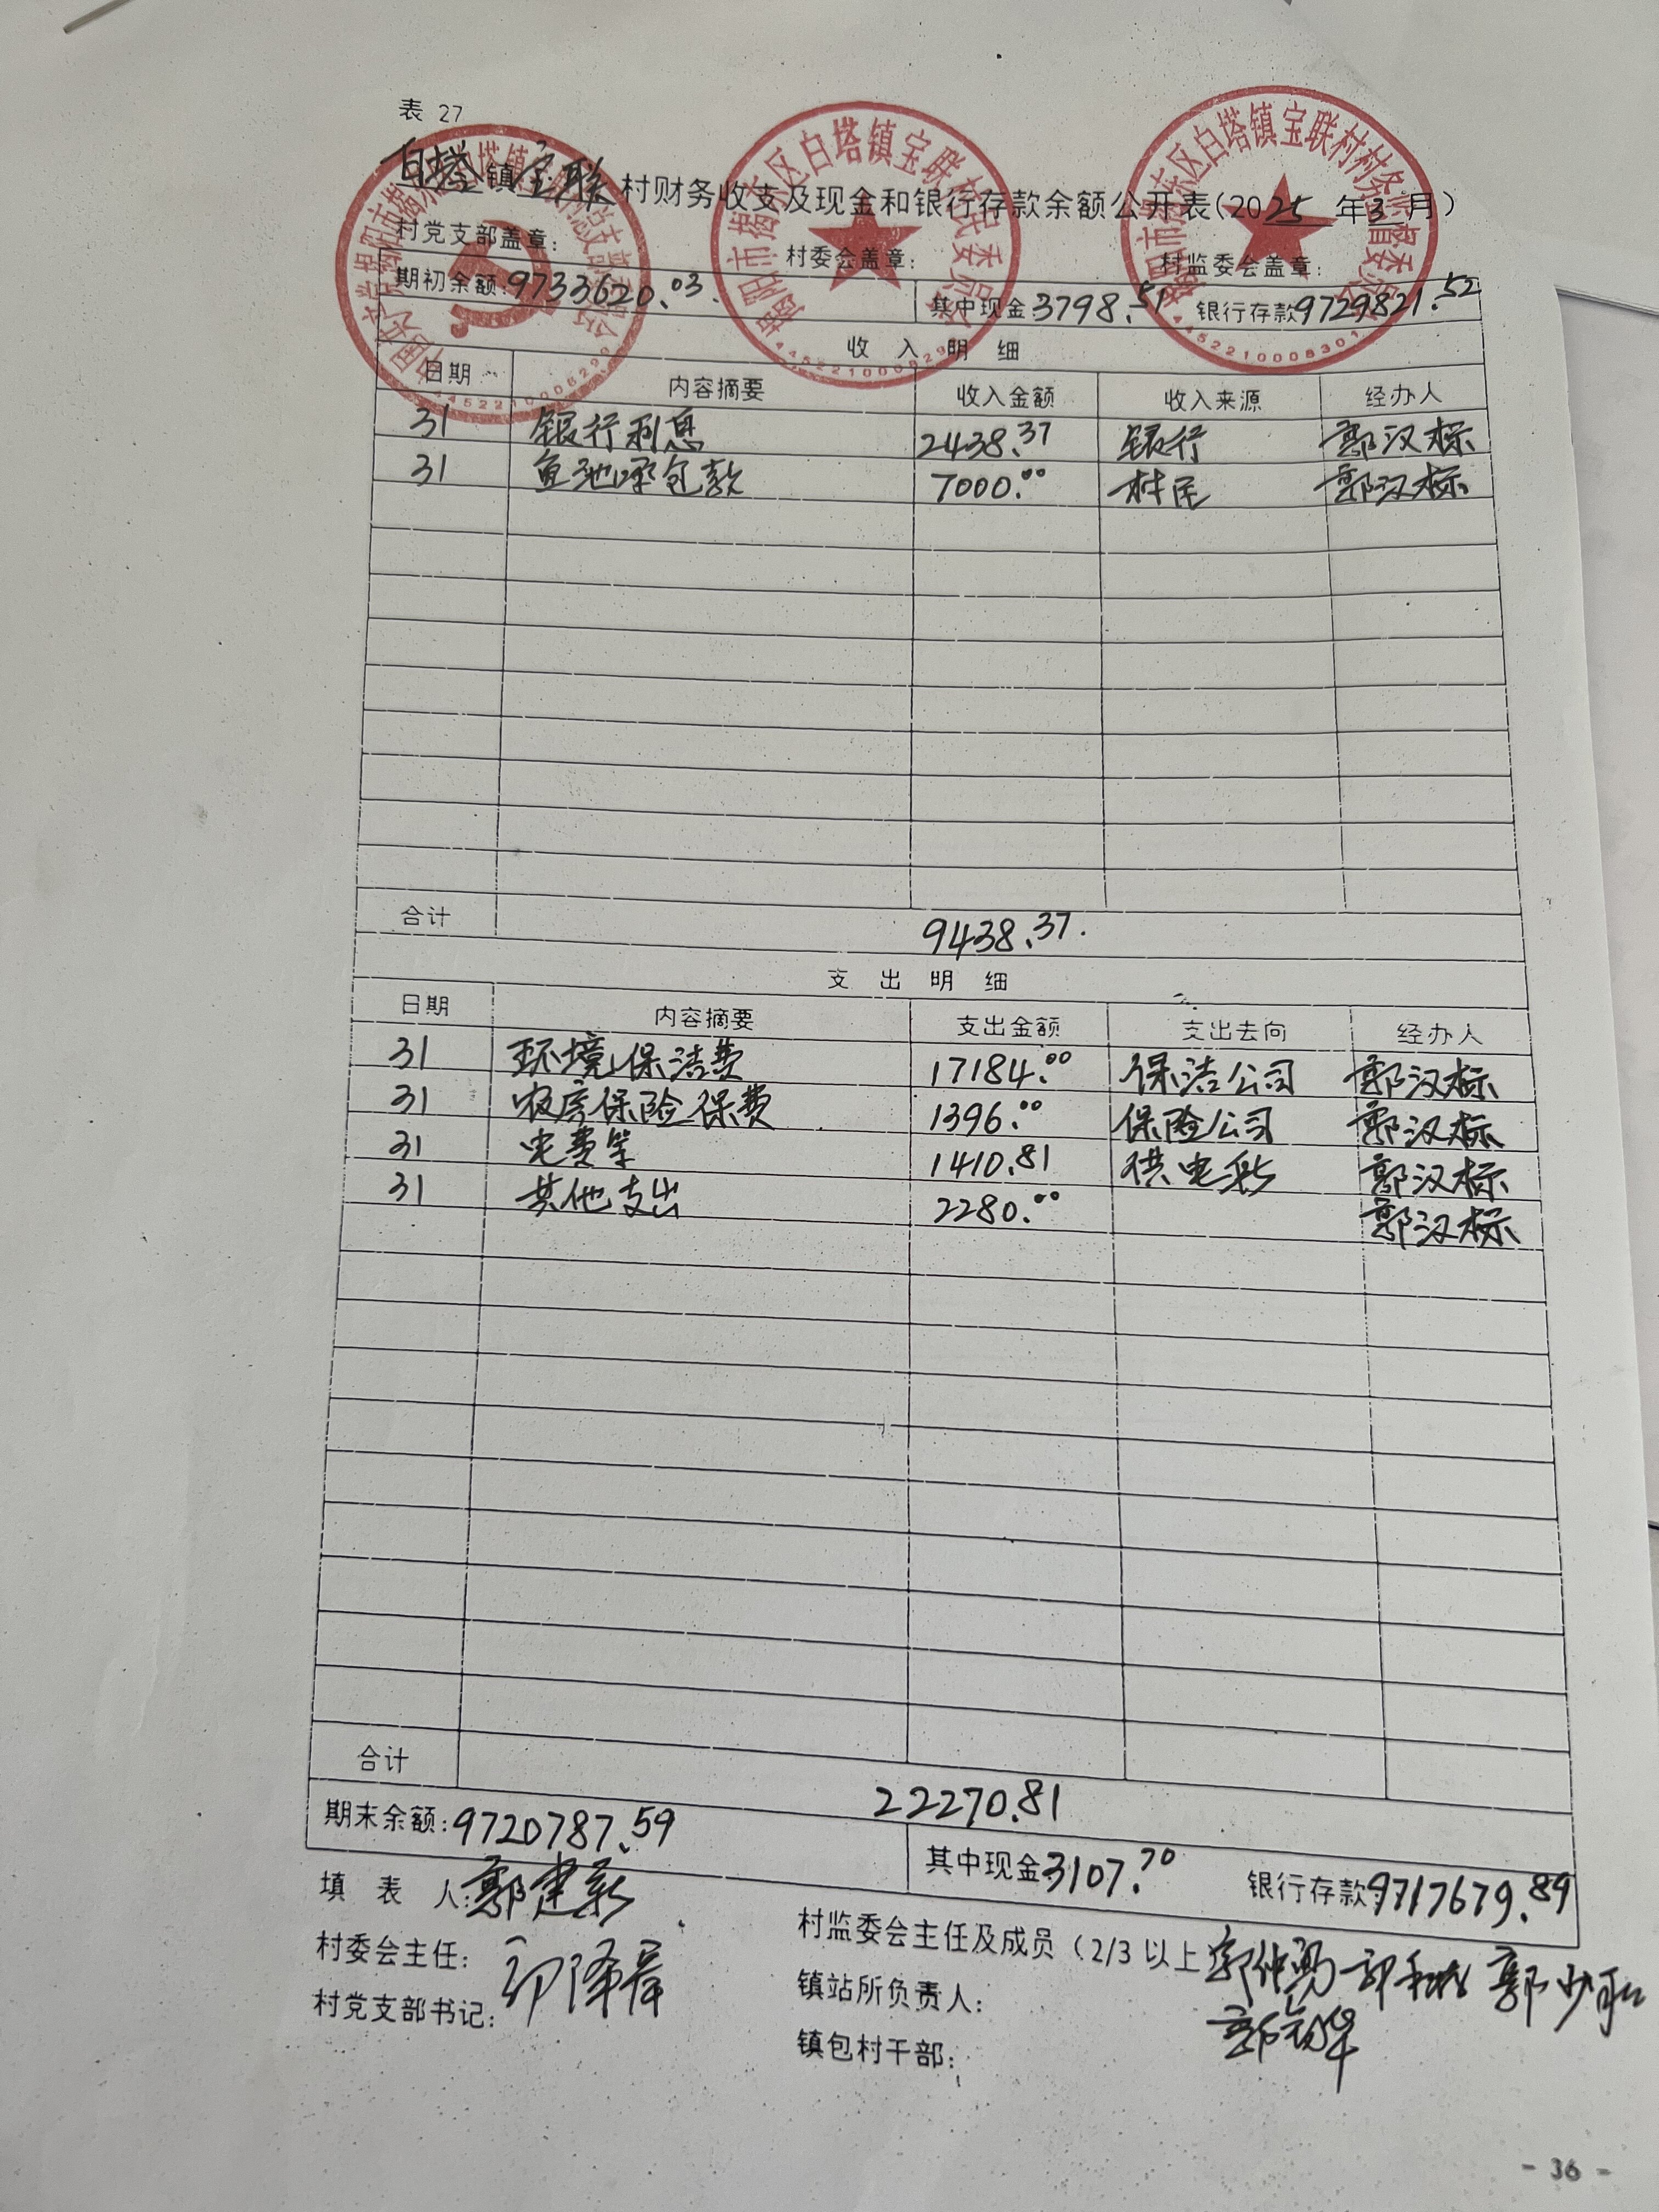 表 27
白塔镇宝联村财务收支及现金和银行存款余额公开表(2025年3月)
村党支部盖章: 村委会盖章: 村监委会盖章:
期初余额:9733620.03. 其中现金3798.51 银行存款9729821.52
收入明细
日期 内容摘要 收入金额 收入来源 经办人
31 银行利息 2438.37 银行 郭汉标
31 鱼池承包款 7000.00 村民 郭汉标
合计 9438.37.
支出明细
日期 内容摘要 支出金额 支出去向 经办人
31 环境保洁费 17184.00 保洁公司 郭汉标
31 农房保险保费 1396.00 保险公司 郭汉标
31 电费等 1410.81 供电所 郭汉标
31 其他支出 2280.00 郭汉标
合计 22270.81
期末余额:9720787.59 其中现金3107.70 银行存款9717679.89
填表人:郭建新
村委会主任: 村监委会主任及成员(2/3以上
村党支部书记: 镇站所负责人:
镇包村干部:
- 36 -